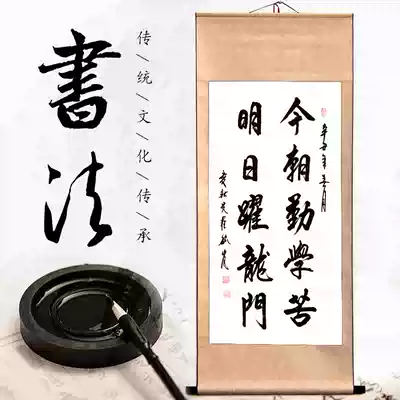 書法
传/统/文/化/传/承
今朝勤學苦
明日躍龍門